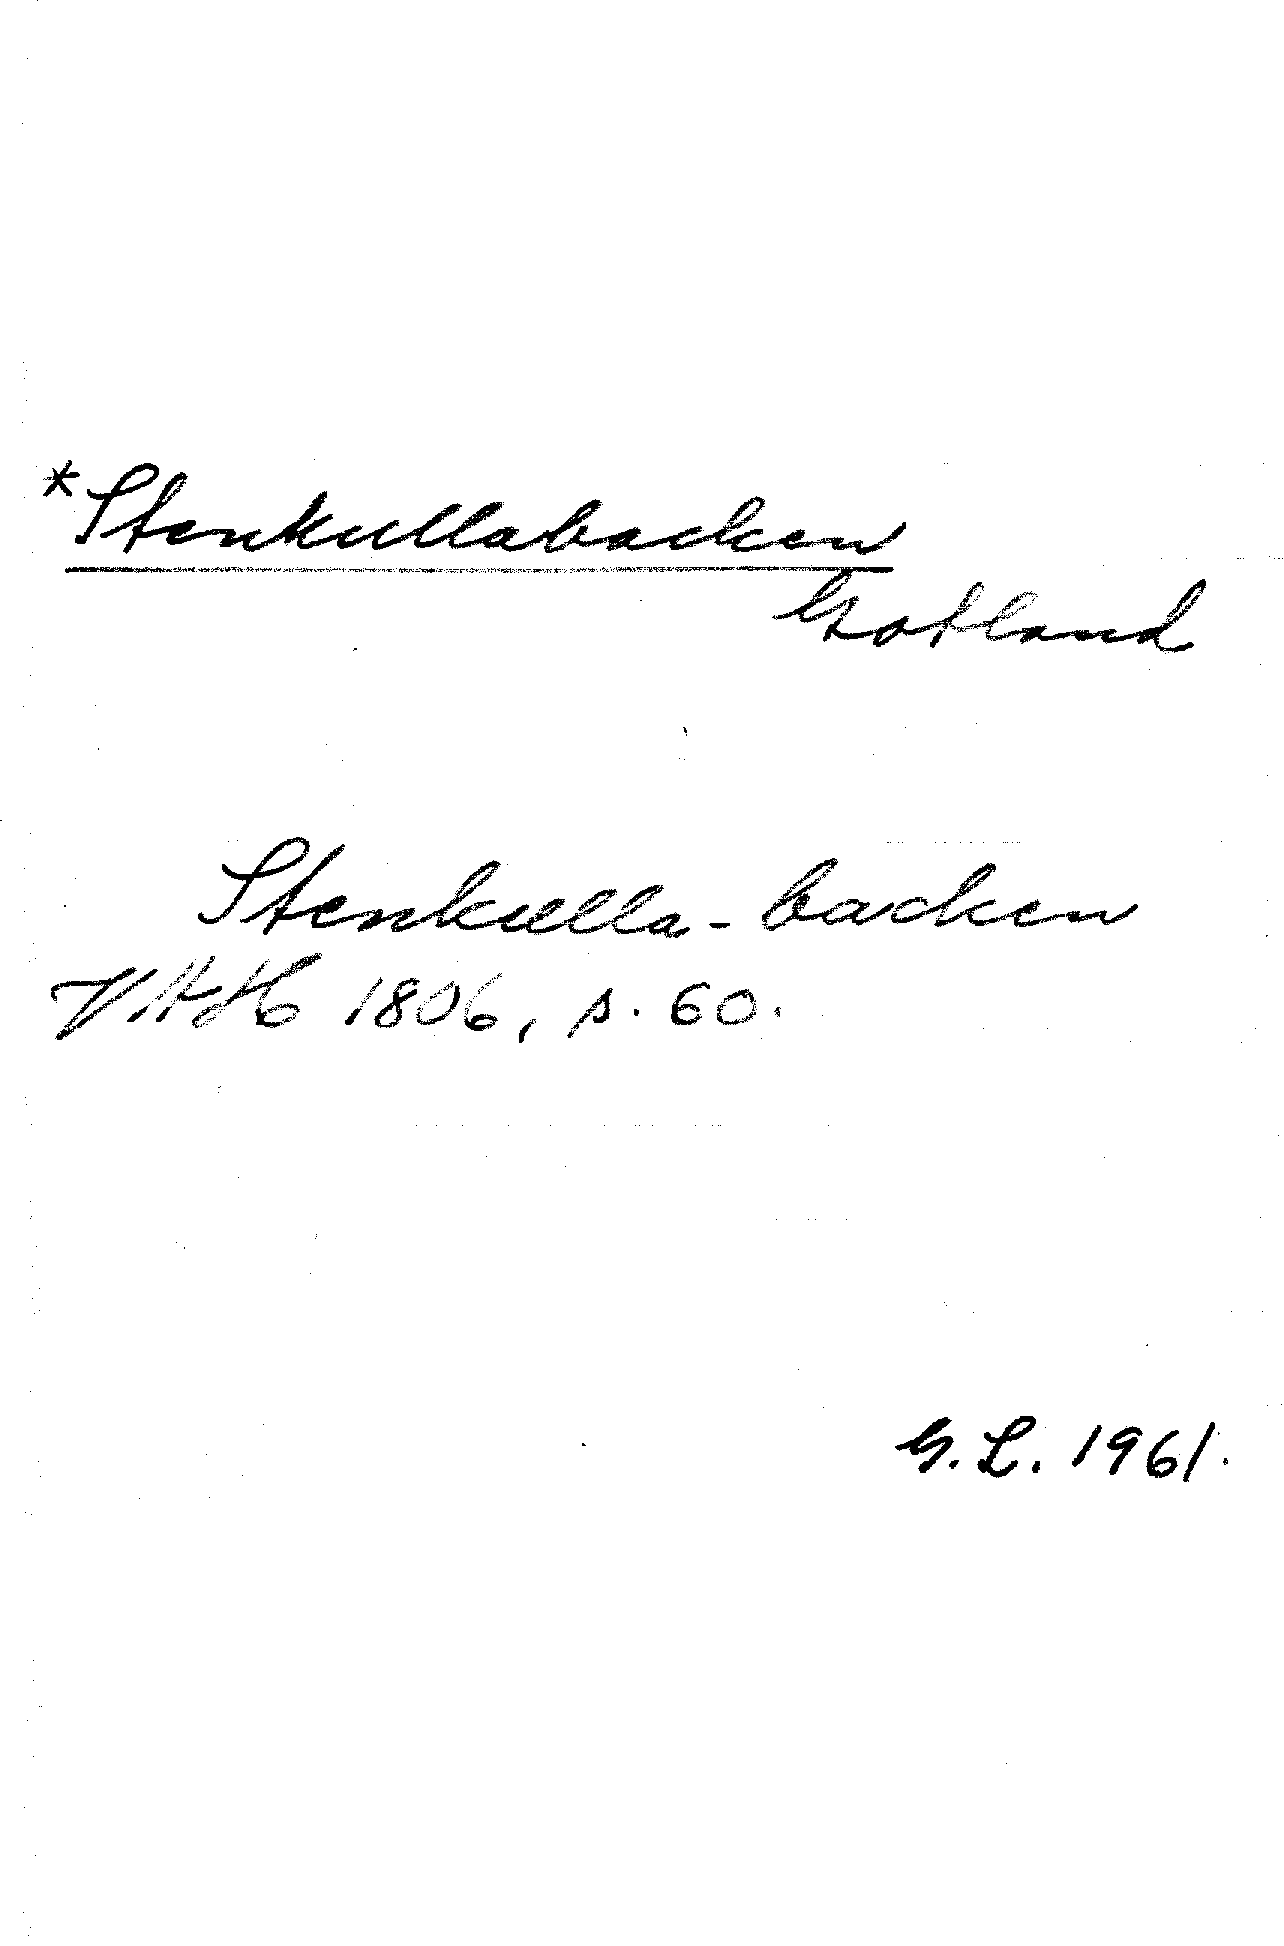 *Stenkullabacken
Gotland
Stenkulla-backen
VAH 1806, s. 60.
G. L. 1961.